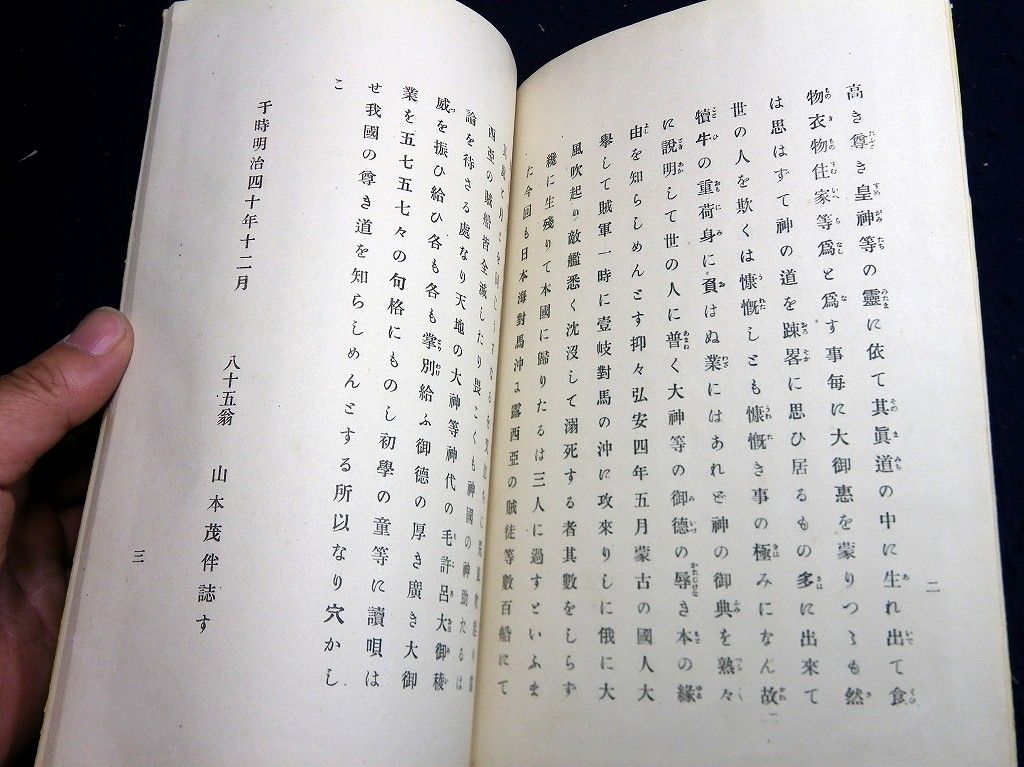 高き尊き皇神等の靈に依て其眞道の中に生れ出て食
物衣物住家等爲と爲す事每に大御惠を蒙りつゝも然
は思はずて神の道を踈畧に思ひ居るもの多に出來て
世の人を欺くは慷慨しとも慷慨き事の極みになん故
犢牛の重荷身に負はぬ業にはあれど神の御典を熟々
に說明して世の人に普く大神等の御德の辱き本の緣
由を知らしめんとす抑々弘安四年五月蒙古の國人大
擧して賊軍一時に壹岐對馬の沖に攻來りしに俄に大
風吹起り敵艦悉く沈沒して溺死する者其數をしらず
纔に生殘りて本國に歸りたるは三人に過すといふま
た今回も日本海對馬沖に露西亞の賊徒等數百船にて
二
西亞の賊船皆全滅したり畏こくも神國の神助たるは
論を待さる處なり天地の大神等神代の毛許呂大御稜
威を振ひ給ひ各も各も掌別給ふ御德の厚き廣き大御
業を五七五七々の句格にものし初學の童等に讀唄は
せ我國の尊き道を知らしめんとする所以なり穴かし
こ
于時明治四十年十二月
八十五翁 山本茂伴誌す
三